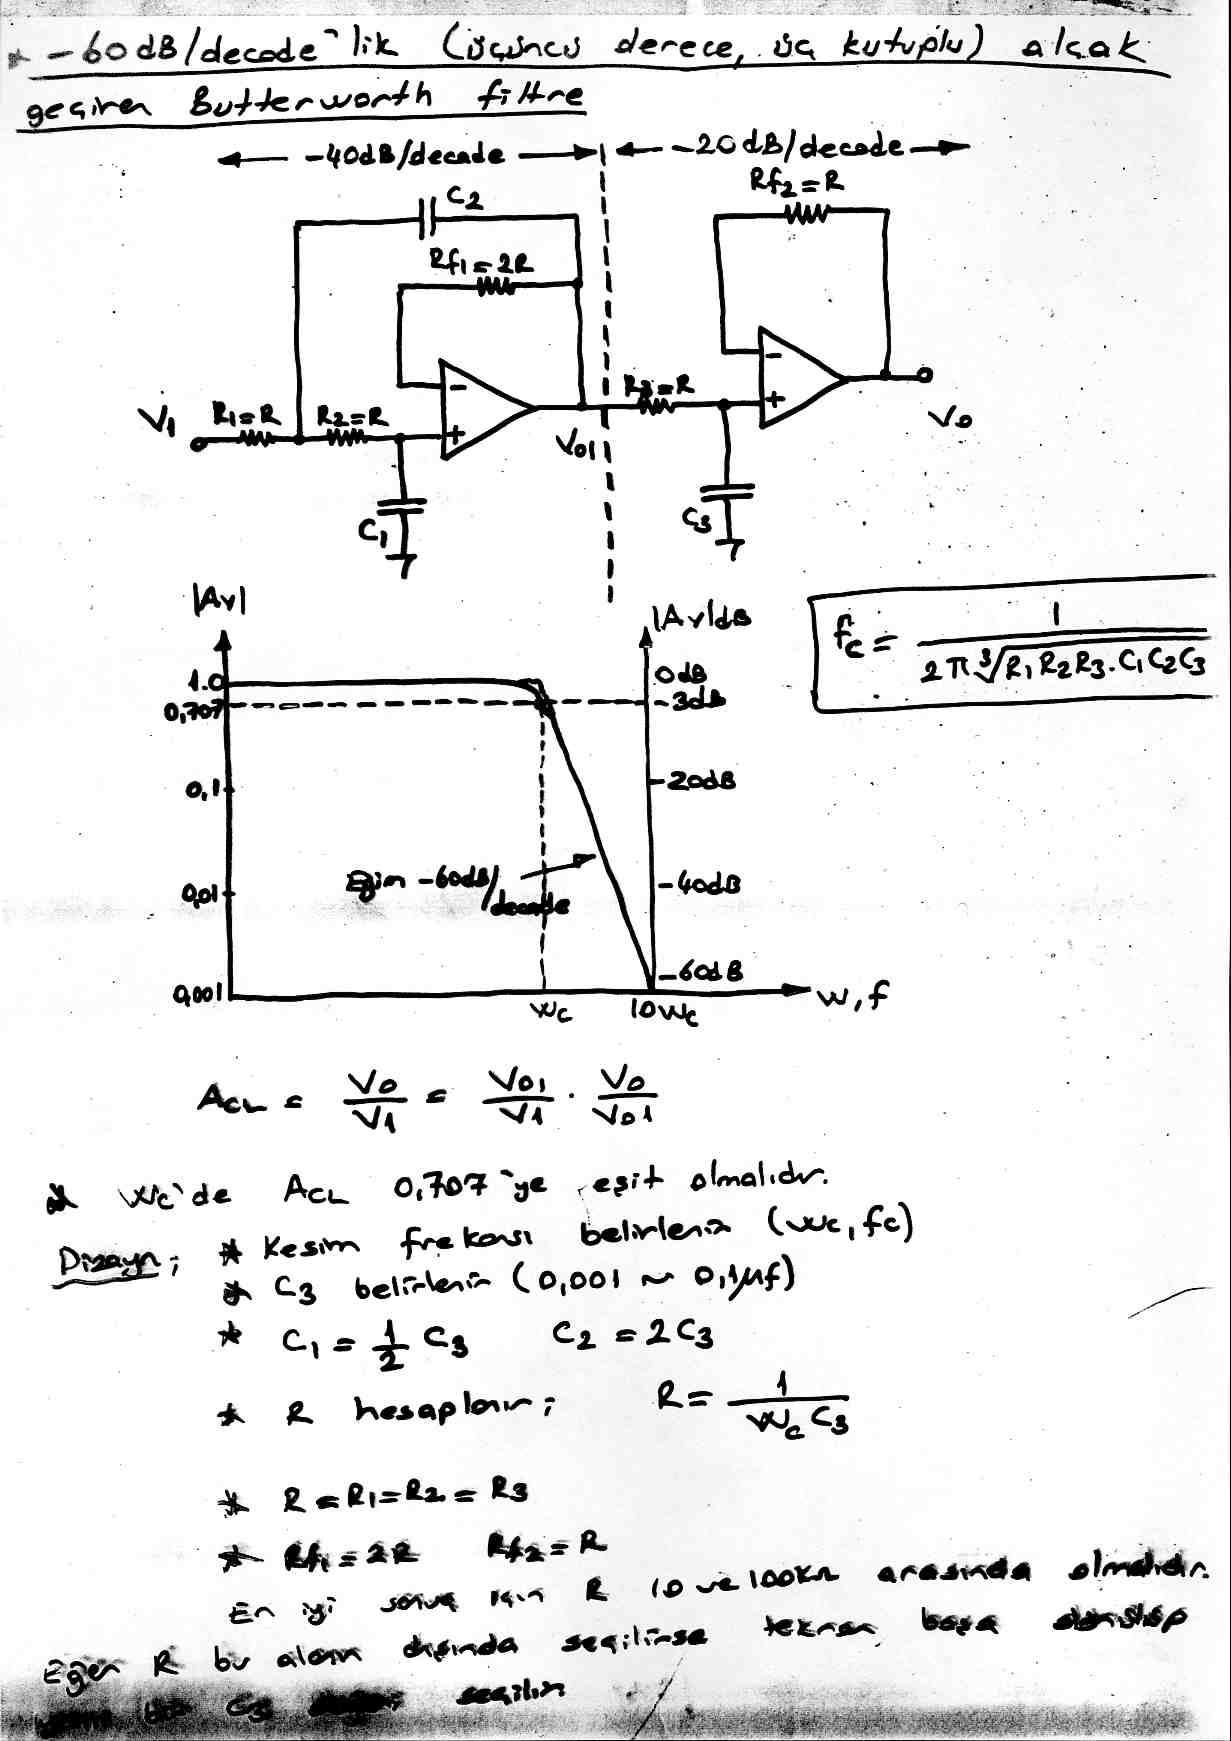 * -60 dB/decade'lik (üçüncü derece, üç kutuplu) alçak
geçiren Butterworth filtre
-40dB/decade -20dB/decade
Rf2=R
C2
Rf1=2R
-
-
R3=R
+
V1 R1=R R2=R
+
V01
V0
C1
C3
|Av|
|Av|dB
fc = 1 / 2π ∛R1R2R3.C1C2C3
1.0 0dB
0,707 -3dB
0,1 -20dB
Eğim -60dB/decade
0,01 -40dB
0,001 -60dB
wc 10wc w,f
ACL = V0/V1 = V01/V1 . V0/V01
* Wc'de ACL 0,707'ye eşit olmalıdır.
Dizayn; * Kesim frekansı belirlenir (wc, fc)
* C3 belirlenir (0,001 ~ 0,1µf)
* C1 = 1/2 C3 C2 = 2C3
* R hesaplanır; R = 1/WcC3
* R = R1 = R2 = R3
* Rf1 = 2R Rf2 = R
En iyi sonuç için R 10 ve 100KΩ arasında olmalıdır.
Eğer R bu alanın dışında seçilirse tekrar başa dönülüp
C3 seçilir